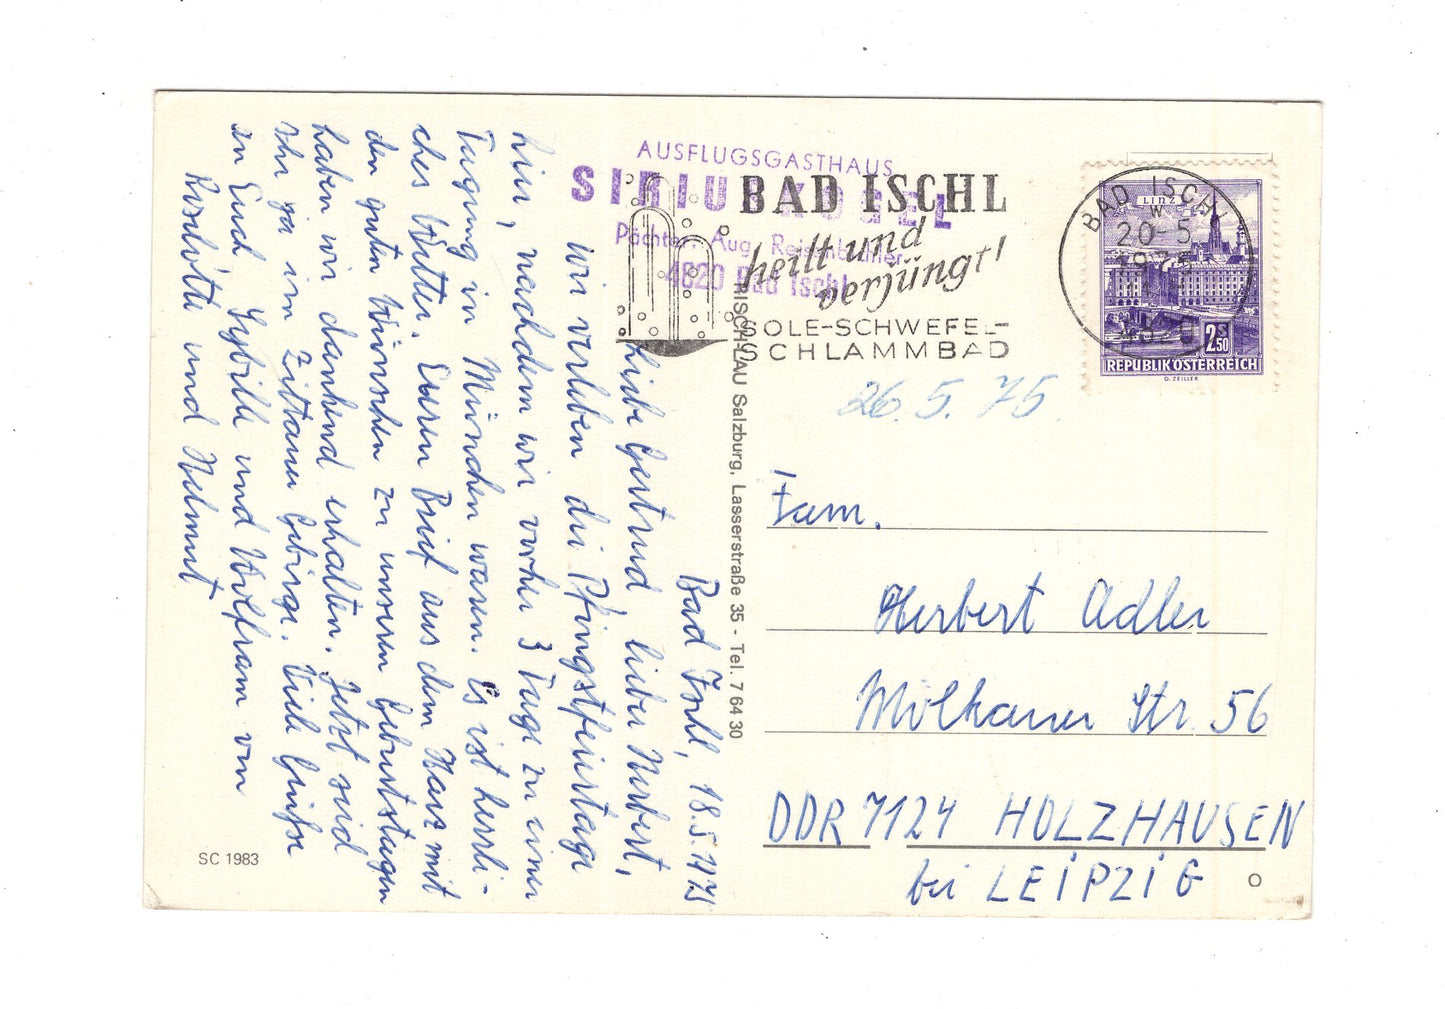 AUSFLUGSGASTHAUS
SIRIUSKOGEL
Pächter: Aug.
4820 Bad Ischl
BAD ISCHL
heilt und
verjüngt!
SOLE-SCHWEFEL-
SCHLAMMBAD
BAD ISCHL
20-5
1975
4820
LINZ
S
2.50
REPUBLIK ÖSTERREICH
G. ZEILLER
26.5.75
Bad Ischl, 18.5.1975
Liebe Gertrud, lieber Herbert,
wir verleben die Pfingstfeiertage
hier, nachdem wir vorher 3 Tage zu einer
Tagung in München waren. Es ist herrli-
ches Wetter. Euren Brief aus dem Harz mit
den guten Wünschen zu unseren Geburtstagen
haben wir dankend erhalten. Jetzt seid
Ihr ja im Zittauer Gebirge. Viele Grüße
an Euch, Sybille und Wolfram von
Roselotte und Helmut
RISCH-LAU Salzburg, Lasserstraße 35 - Tel. 7 64 30
SC 1983
Fam.
Herbert Adler
Mölkauer Str. 56
DDR 7124 HOLZHAUSEN
bei LEIPZIG